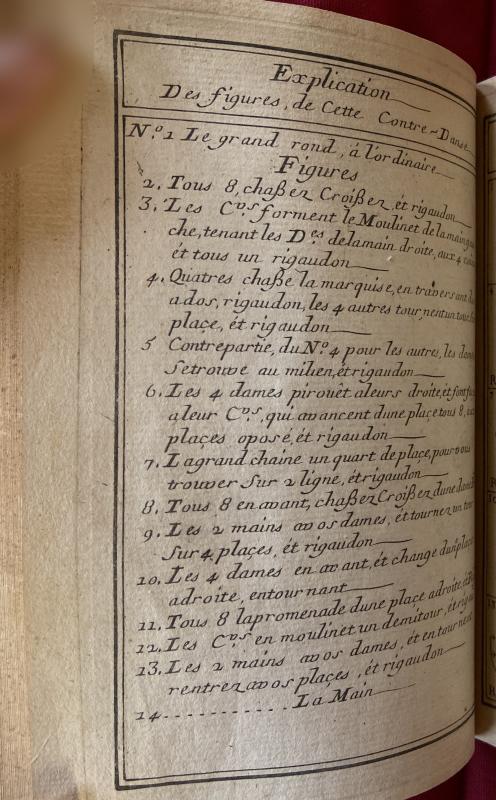 Explication
Des figures, de Cette Contre-Danse
N.º 1 Le grand rond, á l'ordinaire
Figures
2. Tous 8, chaßez Croißez, ét rigaudon
3. Les C.vs forment le Moulinet de la main gau
che, tenant les D.es de la main droite, aux 4 coins
ét tous un rigaudon
4. Quatres chaße la marquise, en travers ant
a dos, rigaudon, les 4 autres tournent un tour
place, ét rigaudon
5 Contrepartie, du N.º 4 pour les autres, les dames
Setrouve au milien, ét rigaudon
6. Les 4 dames pirouêt aleurs droite, ét font face
aleur C.vs, qui avancent dune place tous 8, aux
places oposé, ét rigaudon
7. Lagrand chaine un quart de place, pour vous
trouver Sur 2 ligne, ét rigaudon
8. Tous 8 en avant, chaßez Croißez dune
9. Les 2 mains avos dames, ét tournez un tour
Sur 4, places, ét rigaudon
10. Les 4 dames en avant, ét change dune place
adroite, entournant
11. Tous 8 lapromenade dune place adroite, ét
12. Les C.vs en moulinet un demitour, ét rigau
13. Les 2 mains avos dames, ét en tournent
rentrez avos places, ét rigaudon
14 . . . . . . . . . . . La Main